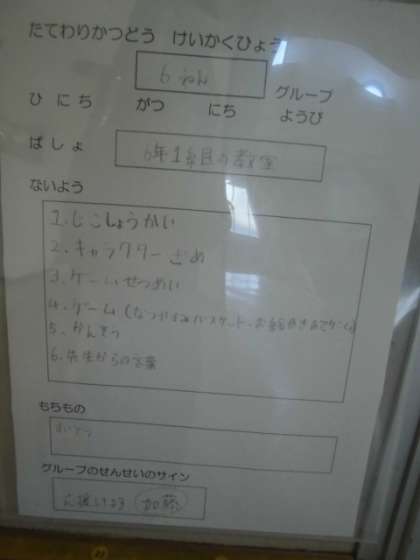 たてわりかつどう けいかくひょう
6ねん グループ
ひにち がつ にち ようび
ばしょ 6年1組の教室
ないよう
1.じこしょうかい
2.キャラクターぎめ
3.ゲームせつめい
4.ゲーム(なつやすみバスケット、お
5.かんそう
6.先生からの言葉
もちもの
グループのせんせいのサイン
応援します 加藤